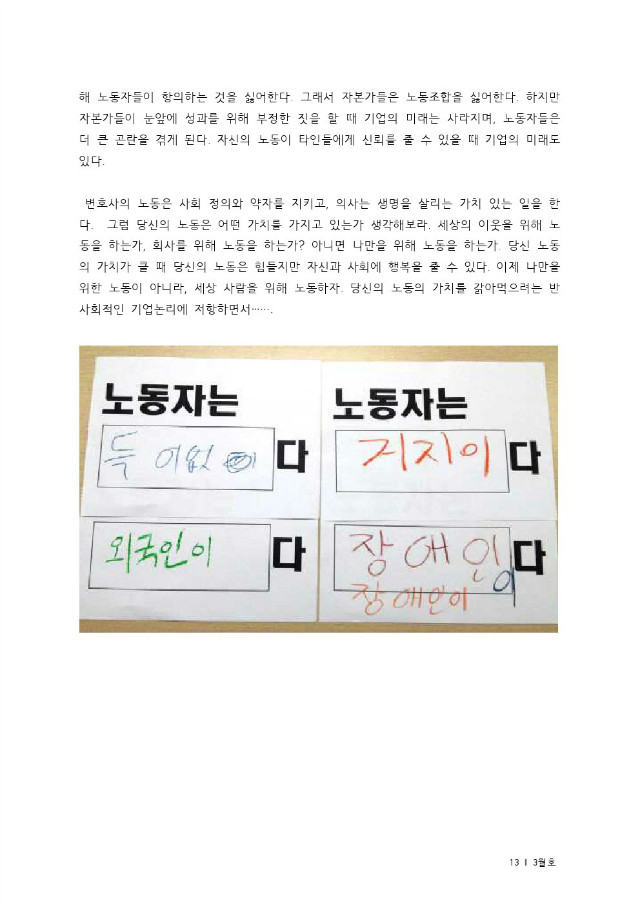 해 노동자들이 항의하는 것을 싫어한다. 그래서 자본가들은 노동조합을 싫어한다. 하지만
자본가들이 눈앞에 성과를 위해 부정한 짓을 할 때 기업의 미래는 사라지며, 노동자들은
더 큰 곤란을 겪게 된다. 자신의 노동이 타인들에게 신뢰를 줄 수 있을 때 기업의 미래도
있다.
변호사의 노동은 사회 정의와 약자를 지키고, 의사는 생명을 살리는 가치 있는 일을 한
다. 그럼 당신의 노동은 어떤 가치를 가지고 있는가 생각해보라. 세상의 이웃을 위해 노
동을 하는가, 회사를 위해 노동을 하는가? 아니면 나만을 위해 노동을 하는가. 당신 노동
의 가치가 클 때 당신의 노동은 힘들지만 자신과 사회에 행복을 줄 수 있다. 이제 나만을
위한 노동이 아니라, 세상 사람을 위해 노동하자. 당신의 노동의 가치를 갉아먹으려는 반
사회적인 기업논리에 저항하면서…….
노동자는
어없 이 다
노동자는
거지이 다
외국인이 다
장애인이 다
장애인이
13 I 3월호